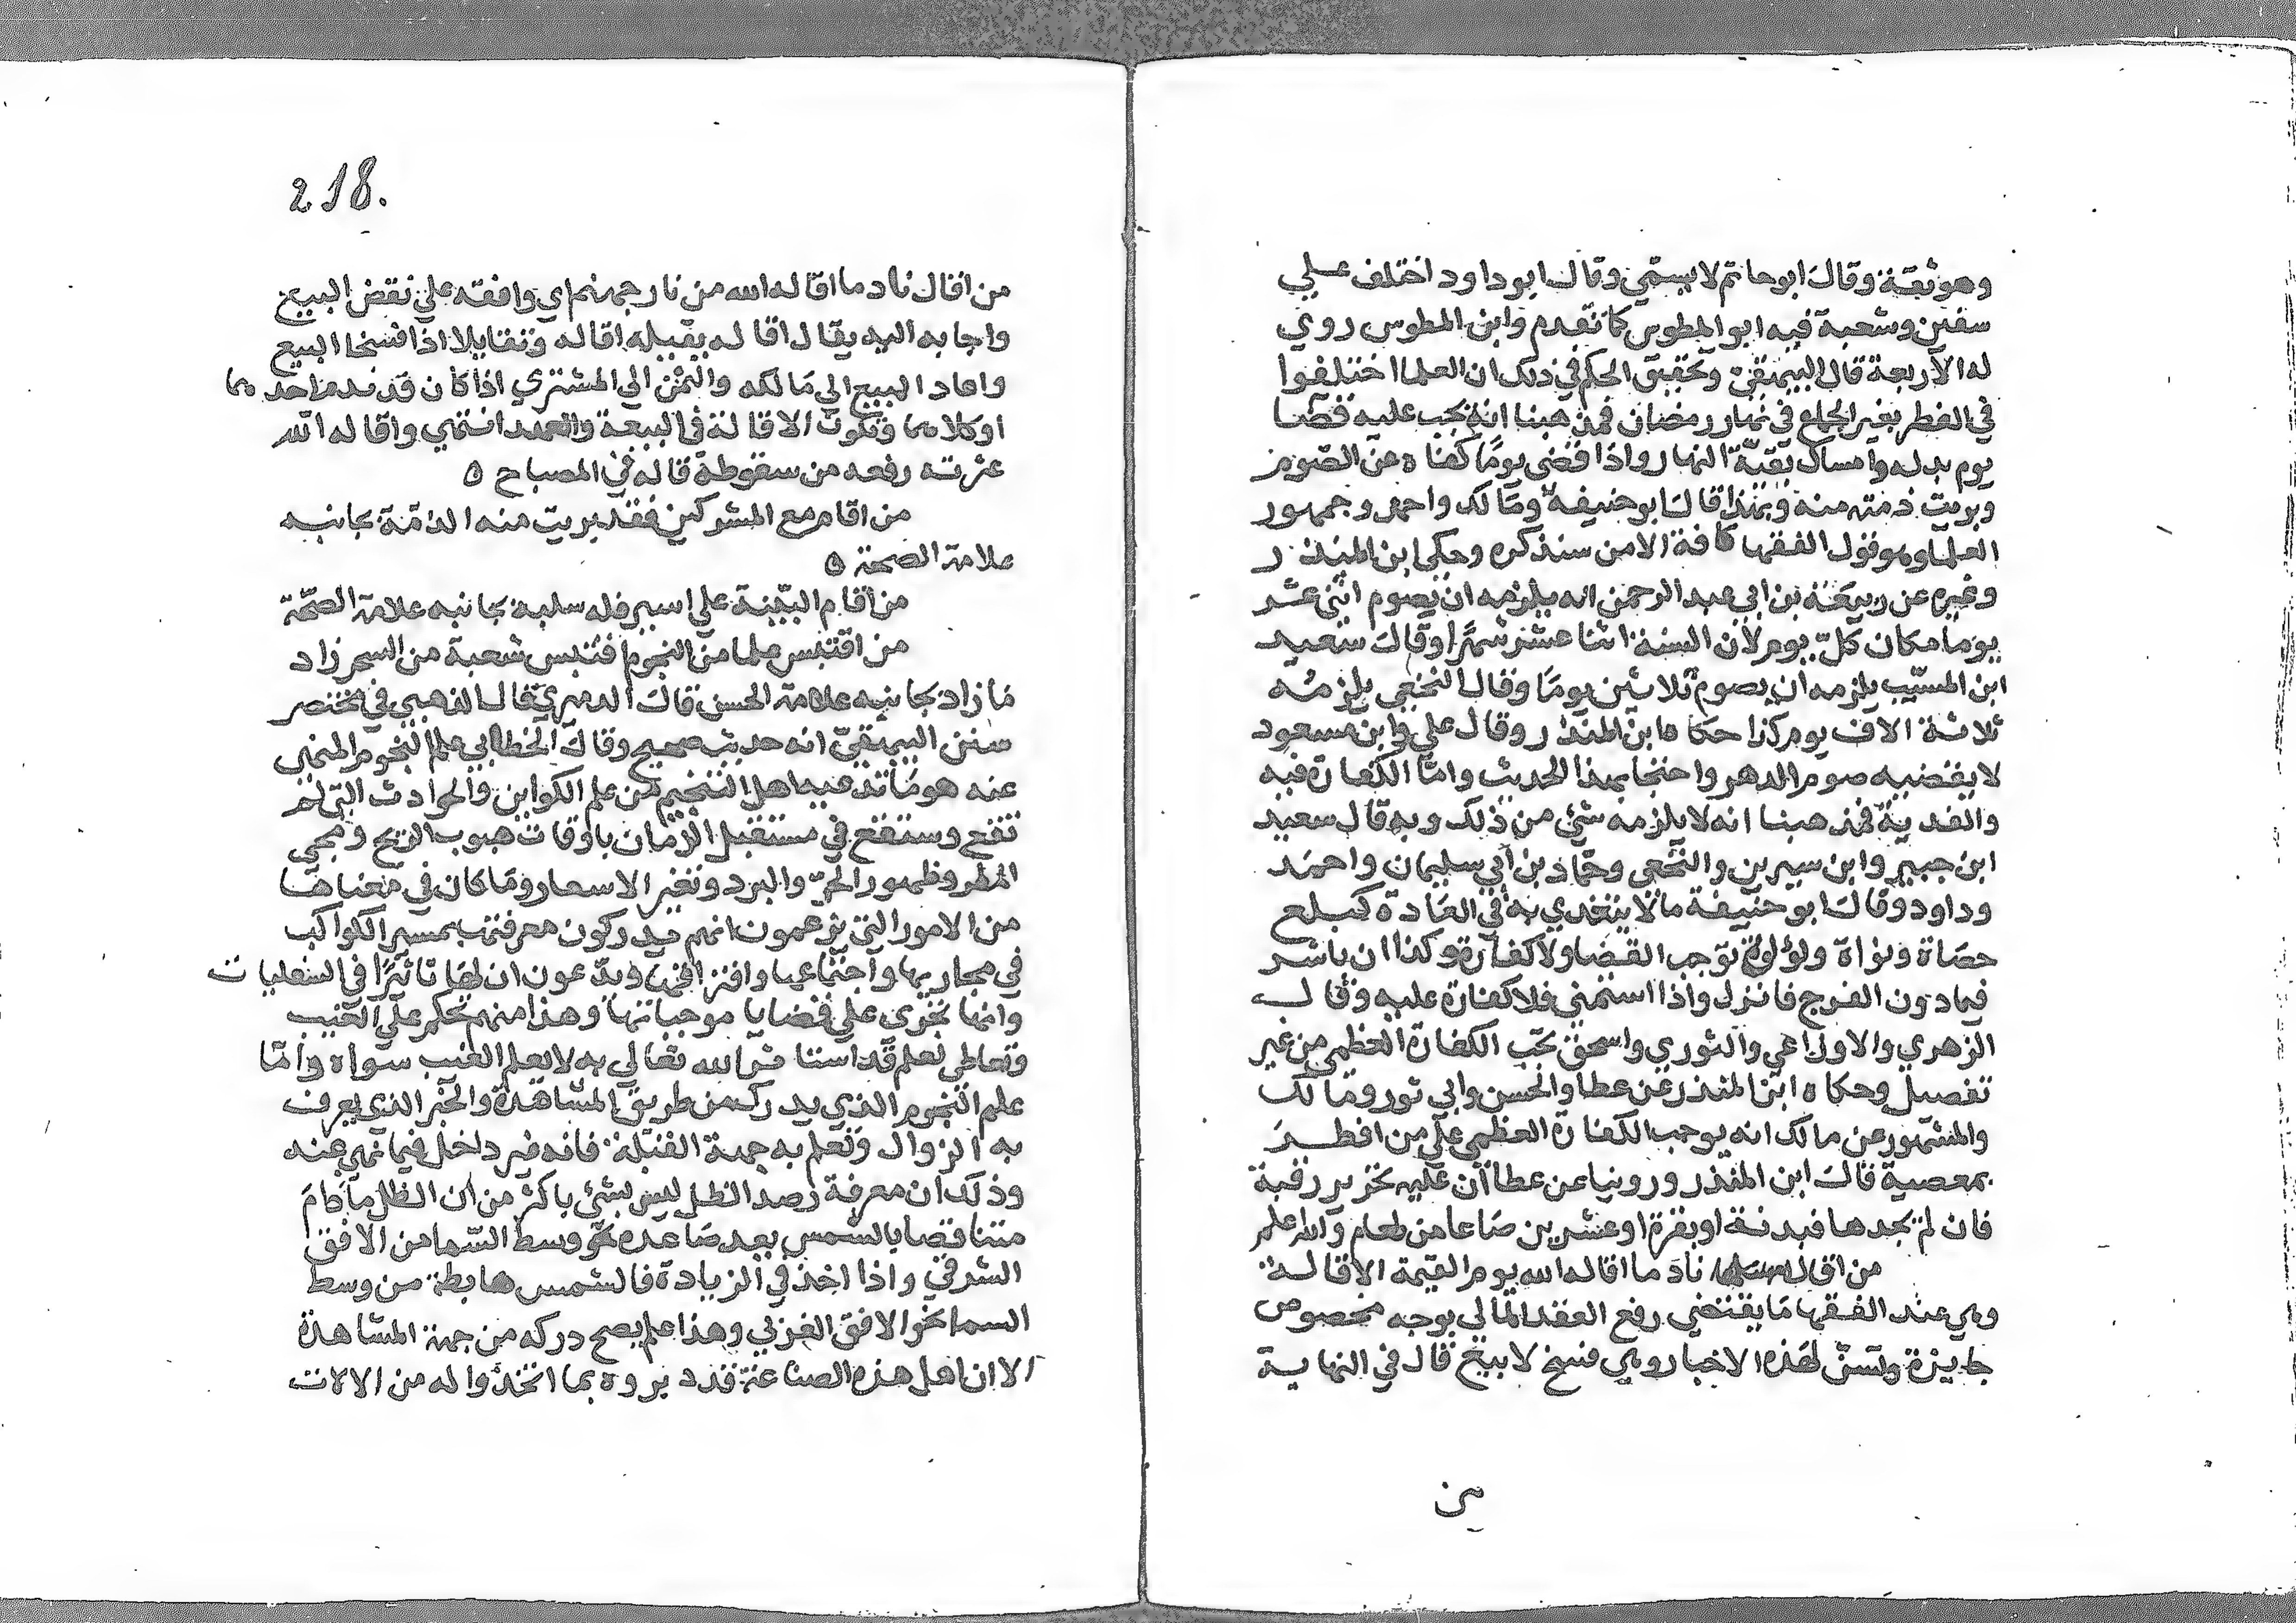 وهو ثقة وقال ابو حاتم لا يسمي وقال ابو داود اختلف علي
سفين وشعبة فيه ابو المطوس كما تقدم وابن المطوس روي
له الاربعة قال البيهقي وتحقيق الحكم في ذلك ان العلما اختلفوا
في الفطر بغير الجماع في نهار رمضان فمذهبنا انه يجب عليه قضا
يوم بدله وامساك بقية النهار واذا قضي يوما كفاه عن الصوم
وبريت ذمته منه وبهذا قال ابو حنيفة ومالك واحمد وجمهور
العلما وهو قول الفقها كافة الا من سنذكره وحكي ابن المنذر
وغيره عن ربيعة بن ابي عبد الرحمن انه يلزمه ان يصوم اثني عشر
يوما مكان كل يوم لان السنة اثنا عشر شهرا وقال سعيد
ابن المسيب يلزمه ان يصوم ثلاثين يوما وقال النخعي يلزمه
ثلاثة الاف يوم كذا حكاه ابن المنذر وقال علي وابن مسعود
لا يقضيه صوم الدهر واحتجا بهذا الحديث واما الكفارة فيه
والفدية فمذهبنا انه لا يلزمه شئ من ذلك وبه قال سعيد
ابن جبير وابن سيرين والنخعي وحماد بن ابي سليمان واحمد
وداود وقال ابو حنيفة ما لا يتغدي به في العادة كبلع
حصاة ونواة ولؤلؤة توجب القضا ولا كفارة وكذا ان باشر
فيما دون الفرج فانزل واذا استمني فلا كفارة عليه وقال
الزهري والاوزاعي والثوري واسحق تجب الكفارة العظمي من غير
تفصيل وحكاه ابن المنذر عن عطا والحسن وابي ثور ومالك
والمشهور عن مالك انه يوجب الكفارة العظمي علي من افطر
بمعصية قال ابن المنذر وروينا عن عطا ان عليه تحرير رقبة
فان لم يجدها فبدنة او بقرة او عشرين صاعا من طعام والله اعلم
من اقال مسلما نادما اقاله الله يوم القيمة الاقالة
وهي عند الفقها ما يقتضي رفع العقد المالي بوجه مخصوص
جايزة وتسن لهذه الاخبار وهي فسخ لا بيع قال في النهاية
من
218.
من اقال نادما اقاله الله من نار جهنم اي وافقه علي نقض البيع
واجابه اليه يقال اقاله يقيله اقاله وتقايلا اذا فسخا البيع
واعاد البيع الي مالكه والثمن الي المشتري اذا كان قد ندم احدهما
او كلاهما وتكون الاقالة في البيعة والعهد انتهي واقاله الله
عثرته رفعه من سقوطه قاله في المصباح ٥
من اقام مع المشركين فقد بريت منه الذمة بجانبه
علامة الصحة ٥
من اقام البينة علي اسير فله سلبه بجانبه علامة الصحة
من اقتبس علما من النجوم اقتبس شعبة من السحر زاد
ما زاد بجانبه علامة الحسن قال الدميري قال الذهبي في مختصر
سنن البيهقي انه حديث صحيح وقال الخطابي علم النجوم المنهي
عنه هو ما تدعيه اهل التنجيم من علم الكواين والحوادث التي لم
تقع وستقع في مستقبل الزمان باوقات هبوب الريح ومجي
المطر وظهور الحر والبرد وتغير الاسعار وما كان في معناها
من الامور التي يزعمون انهم يدركون معرفتها بمسير الكواكب
في مجاريها واجتماعها وافتراقها ويدعون ان لها تاثيرا في السفليات
وانها تجري علي قضايا موجباتها وهذا منهم تحكم علي الغيب
وتعاطي لعلم قد استاثر الله تعالي به لا يعلم الغيب سواه واما
علم النجوم الذي يدرك من طريق المشاهدة والخبر الذي يعرف
به الزوال وتعلم به جهة القبلة فانه غير داخل فيما نهي عنه
وذلك ان معرفة رصد الظل ليس بشئ باكثر من ان الظل ما دام
متناقصا بالشمس بعد صاعده نحو وسط السما من الافق
الشرقي واذا اخذ في الزيادة فالشمس هابطة من وسط
السما نحو الافق الغربي وهذا علم يصح دركه من جهة المشاهدة
الا ان اهل هذه الصناعة قد دبروه بما اتخذوا له من الالات